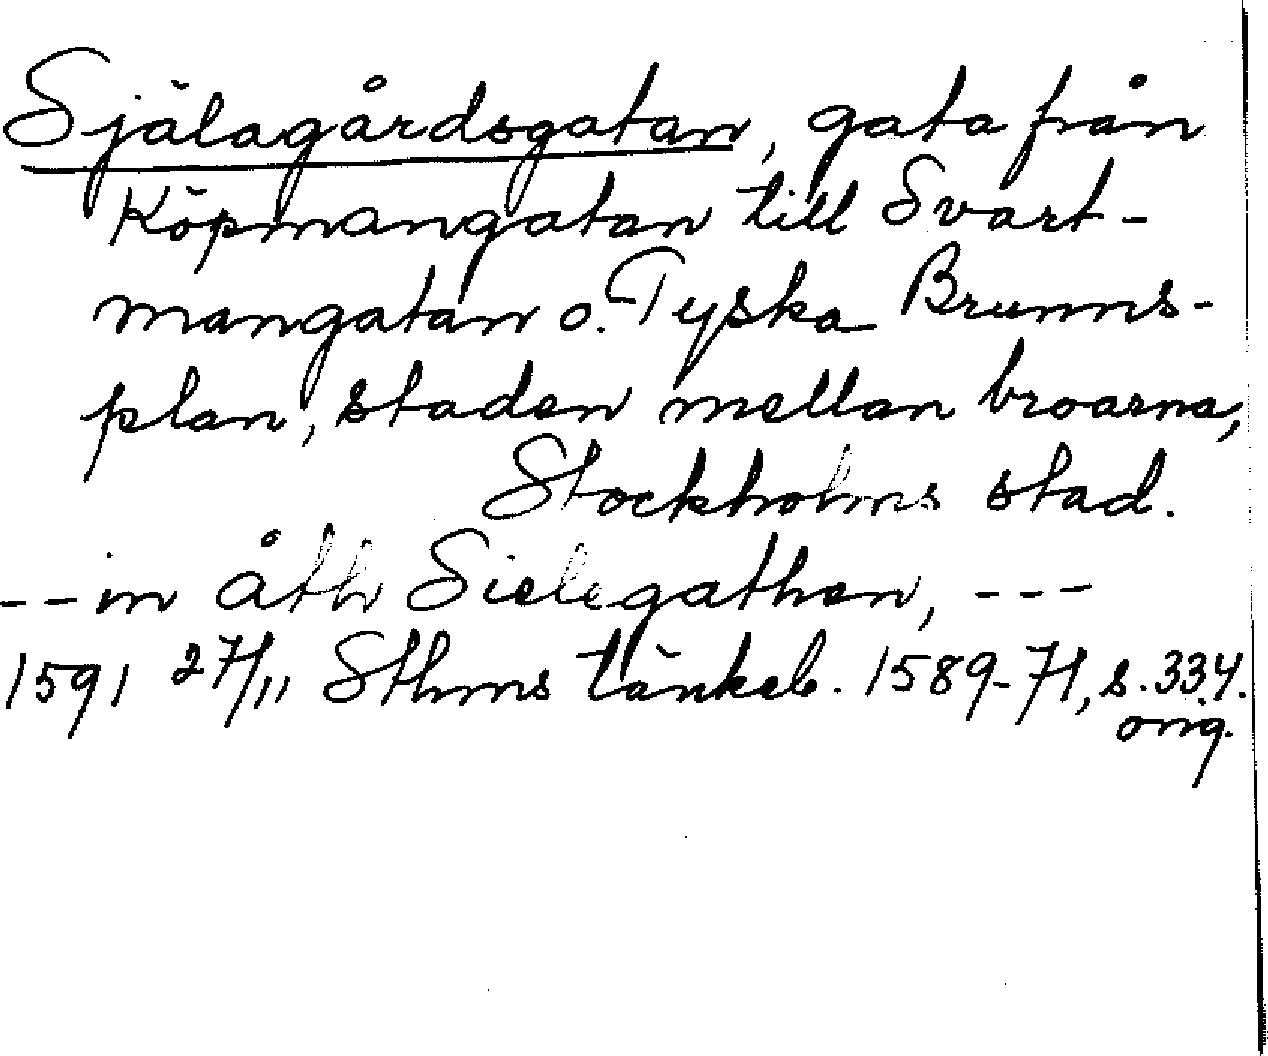 Själagårdsgatan, gata från
Köpmangatan till Svart-
mangatan o. Tyska Brunns-
plan, staden mellan broarna,
Stockholms stad.
--in åth Sielegathen, ---
1591 27/11 Sthms tänkeb. 1589-71, s. 334.
orig.